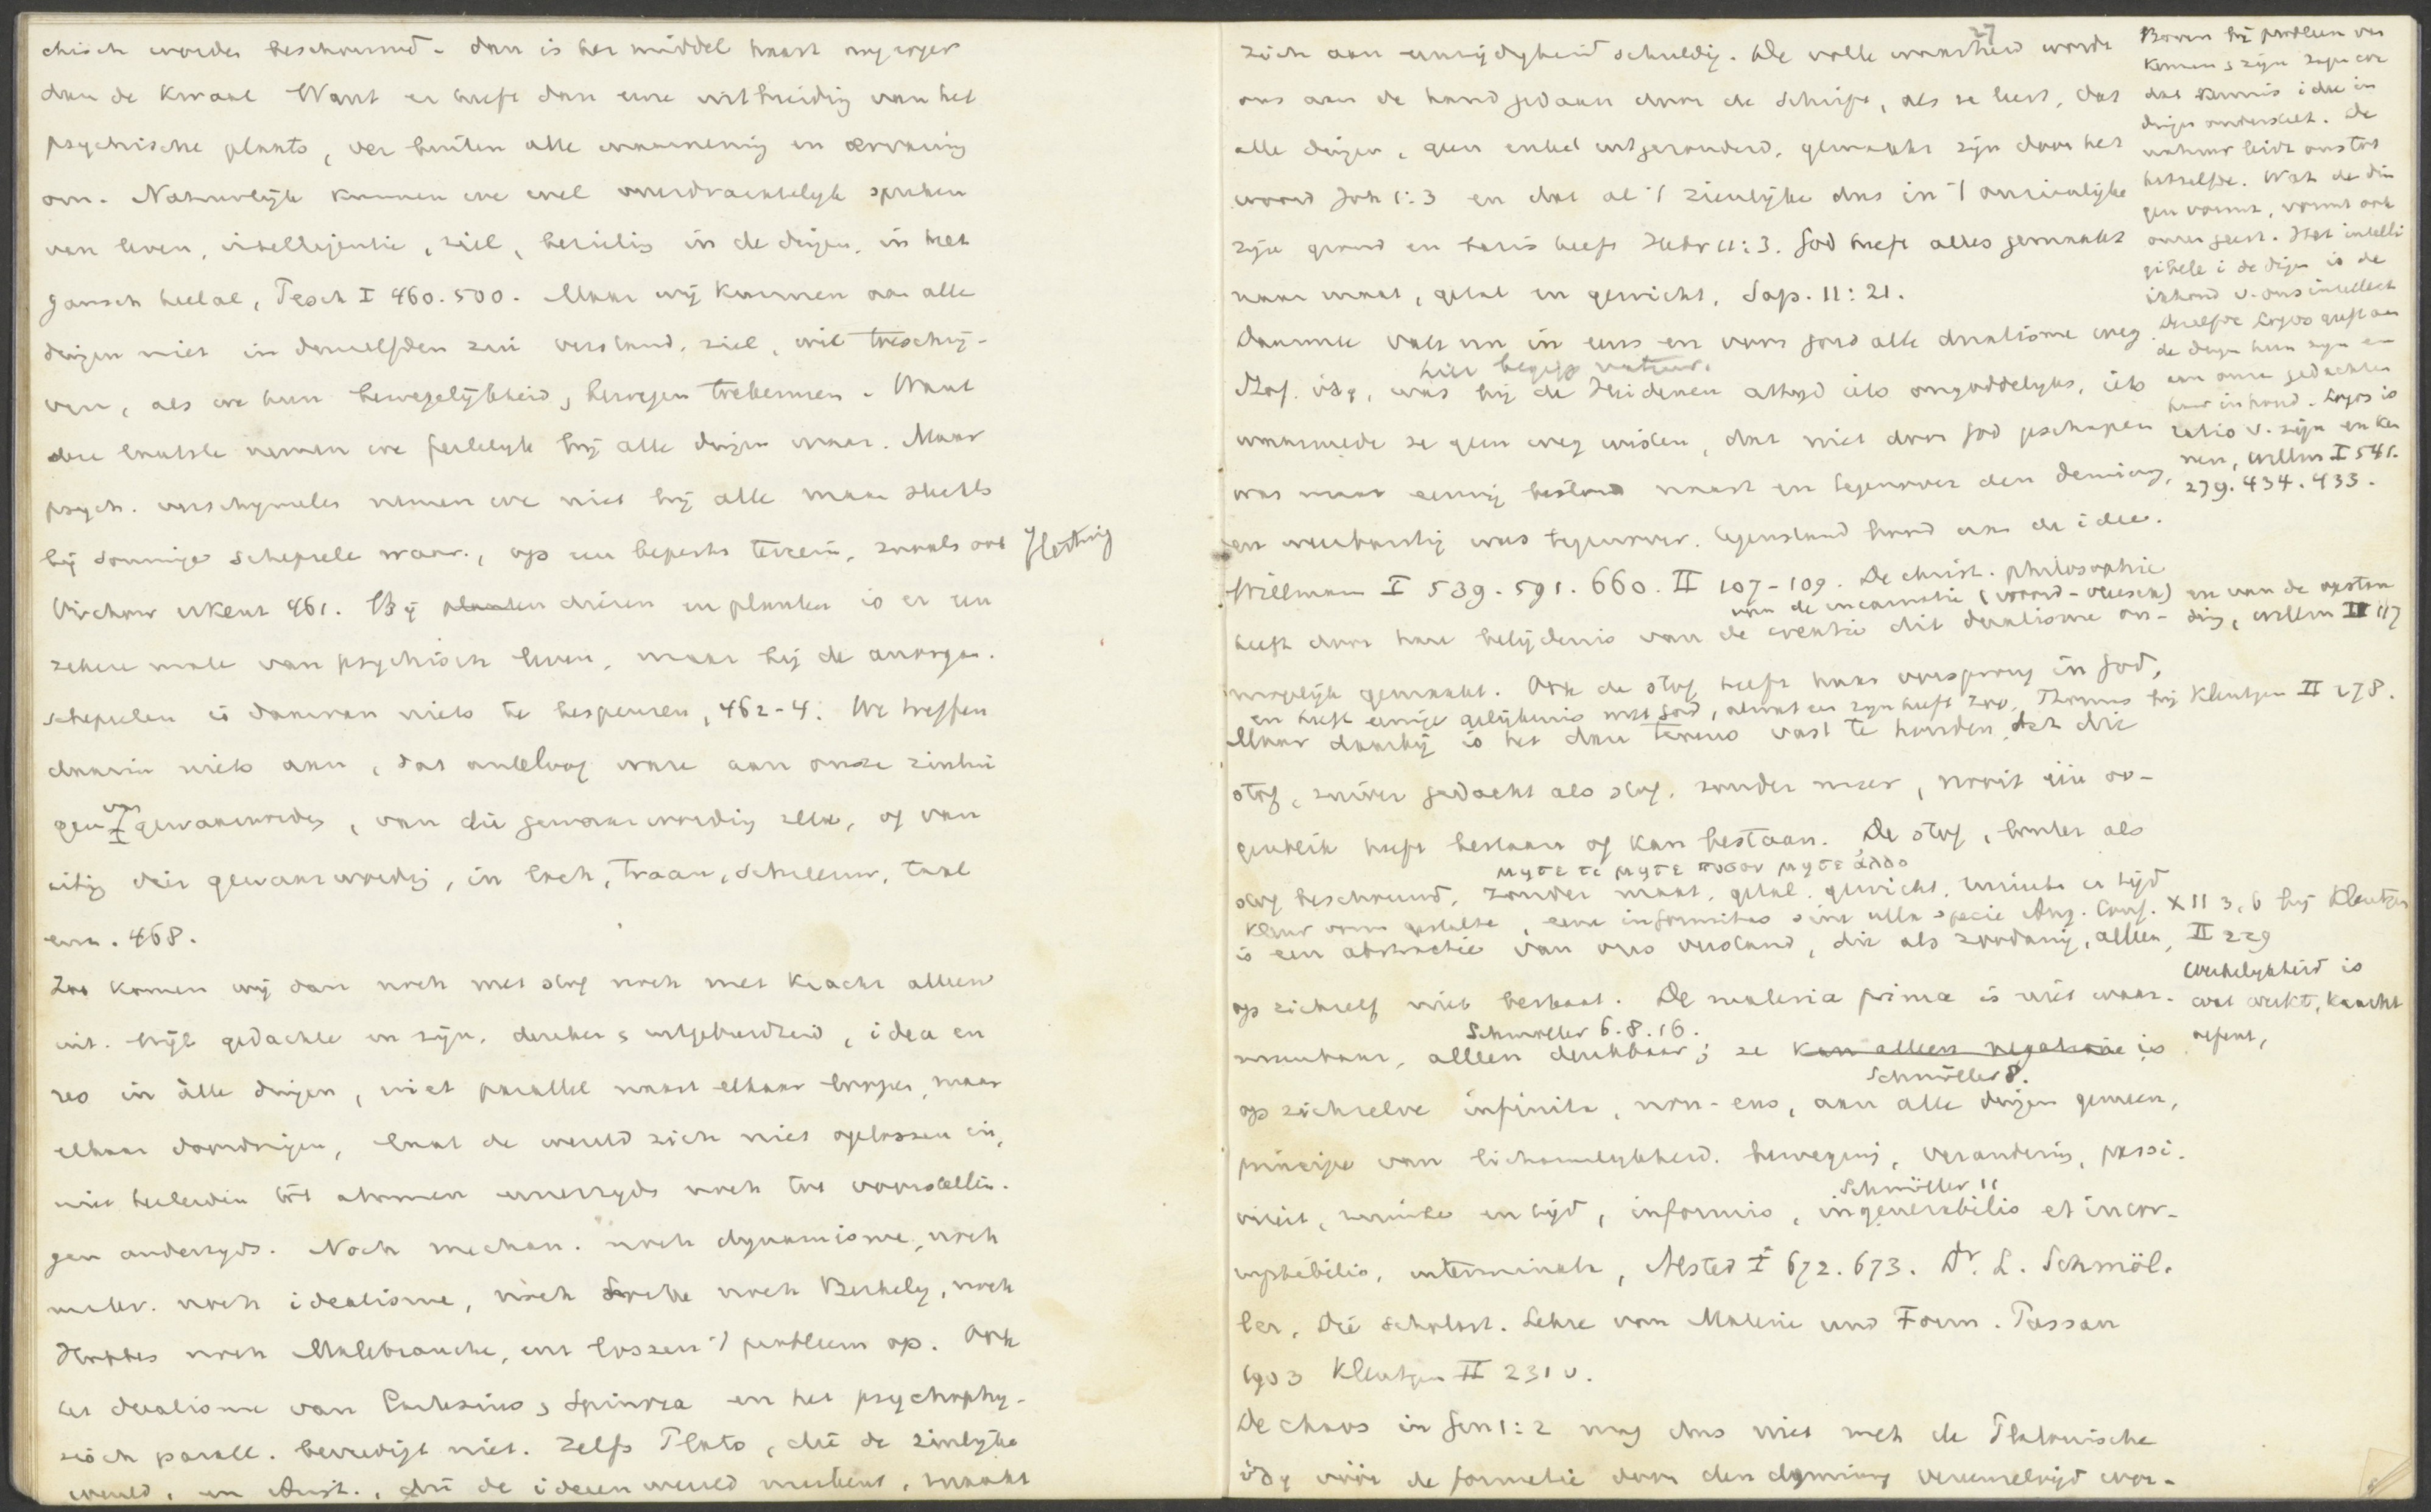 chisch worden beschouwd. dan is het middel haast nog erger
dan de kwaal Want er heeft dan eene uitbreiding van het
psychische plaats, ver buiten alle waarneming en ervaring
om. Natuurlijk kunnen we wel overdrachtelijk spreken
van leven, intelligentie, ziel, bezieling in de dingen, in het
gansch heelal, Pesch I 460. 500. Maar wij kunnen aan alle
dingen niet in denzelfden zin verstand, ziel, wil toeschrij-
ven, als we hun bewegelijkheid, bewegen toekennen. Want
deze laatste nemen we feitelijk bij alle dingen waar. Maar
psych. verschijnselen nemen we niet bij alle maar slechts
bij sommige schepselen waar, op een beperkt terrein, zooals ook Hertwig
Virchow erkent 461. Bij planten dieren en planten is er een
zekere mate van psychisch leven, maar bij de anorgan.
schepselen is daarvan niets te bespeuren, 462-4. We treffen
daarin niets aan, dat analoog ware aan onze zinlij
ge gewaarwording, van die gewaarwording zelve, of van
uiting dier gewaarwording, in lach, traan, schreeuw, taal
enz. 468.
Zoo komen wij dan noch met stof noch met kracht alleen
uit. Wijl gedachte en zijn, denken en uitgebreidheid, idea en
res in alle dingen, niet parallel naast elkaar loopen, maar
elkaar doordringen, laat de wereld zich niet oplossen in,
niet herleiden tot atomen eenerzijds noch tot voorstellin-
gen anderzijds. Noch mechan. noch dynamisme, noch
mater. noch idealisme, noch Locke noch Berkeley, noch
Hobbes noch Malebranche, enz lossen 't probleem op. Ook
het dualisme van Cartesius, Spinoza en het psychophy-
sisch parall. bevredigt niet. Zelfs Plato, die de zinlijke
wereld, en Arist., die de ideeenwereld miskent, maakt
27
zich aan eenzijdigheid schuldig. De volle waarheid wordt
ons aan de hand gedaan door de Schrift, als ze leert, dat
alle dingen, geen enkel uitgezonderd, gemaakt zijn door het
woord Joh 1:3 en dat al 't zienlijke dus in 't onzienlijke
zijn grond en basis heeft Hebr 11:3. God heeft alles gemaakt
naar maat, getal en gewicht, Sap. 11:21.
Daarmede valt nu in eens en voor goed alle dualisme weg
hier begijp natuur.
Stof, ὕλη, was bij de Heidenen altijd iets ongoddelijks, iets
waarmede ze geen weg wisten, dat niet door God geschapen
was maar eeuwig bestond naast en tegenover den demiurg,
en weerbarstig was tegenover, tegenstand bood aan de idee.
Willmann I 539. 591. 660. II 107-109. De christ. philosophie
van de incarnatie (woord-vleesch) en van de opstan
heeft door hare belijdenis van de creatie dit dualisme on- ding, Willm II 117
mogelijk gemaakt. Ook de stof heeft haar oorsprong in God,
en heeft eenige gelijkenis met God, omdat ze zijn heeft zoo, Thomas bij Kleutgen II 278.
Maar daarbij is het dan tevens vast te houden dat die
stof, zuiver gedacht als stof, zonder meer, nooit één oo-
genblik heeft bestaan of kan bestaan. De stof, louter als
μητε τι μητε ποσον μητε ἄλλο
stof beschouwd, zonder maat, getal, gewicht, ruimte en tijd
kleur vorm gestalte, eene informitas sine ulla specie Aug. Conf. XII 3, 6 bij Kleutgen
is een abstractie van ons verstand, die als zoodanig, alleen, II 229
op zichzelf niet bestaat. De materia prima is niet waar-
Schmöller 6. 8. 16.
neembaar, alleen denkbaar; ze kan alleen negatieve is
Schmöller 8.
op zichzelve infinita, non-ens, aan alle dingen gemeen,
principe van lichamelijkheid, beweging, verandering, passi-
Schmöller 11
viteit, ruimte en tijd, informis, ingenerabilis et incor-
ruptibilis, interminata, Alsted I 672. 673. Dr. L. Schmöl.
ler, Die scholast. Lehre von Materie und Form. Passau
1903 Kleutgen II 231 v.
De chaos in Gen 1:2 mag dus niet met de Platonische
ὕλη vóór de formatie door den demiurg vereenzelvigd wor-
Boven bij probleem van
kennen en zijn zagen we
dat kennis idee in
dingen onderstelt. De
natuur leidt ons tot
hetzelfde. Wat de din
gen vormt, vormt ook
onzen geest. Het intelli
gibele i de dingen is de
inhoud v. ons intellect
Dezelfde Logos geeft aan
de dingen hun zijn en
aan onze gedachten
haar inhoud. Logos is
ratio v. zijn en ken
nen, Willm I 541.
279. 434. 433.
Werkelijkheid is
wat werkt, kracht
oefent,